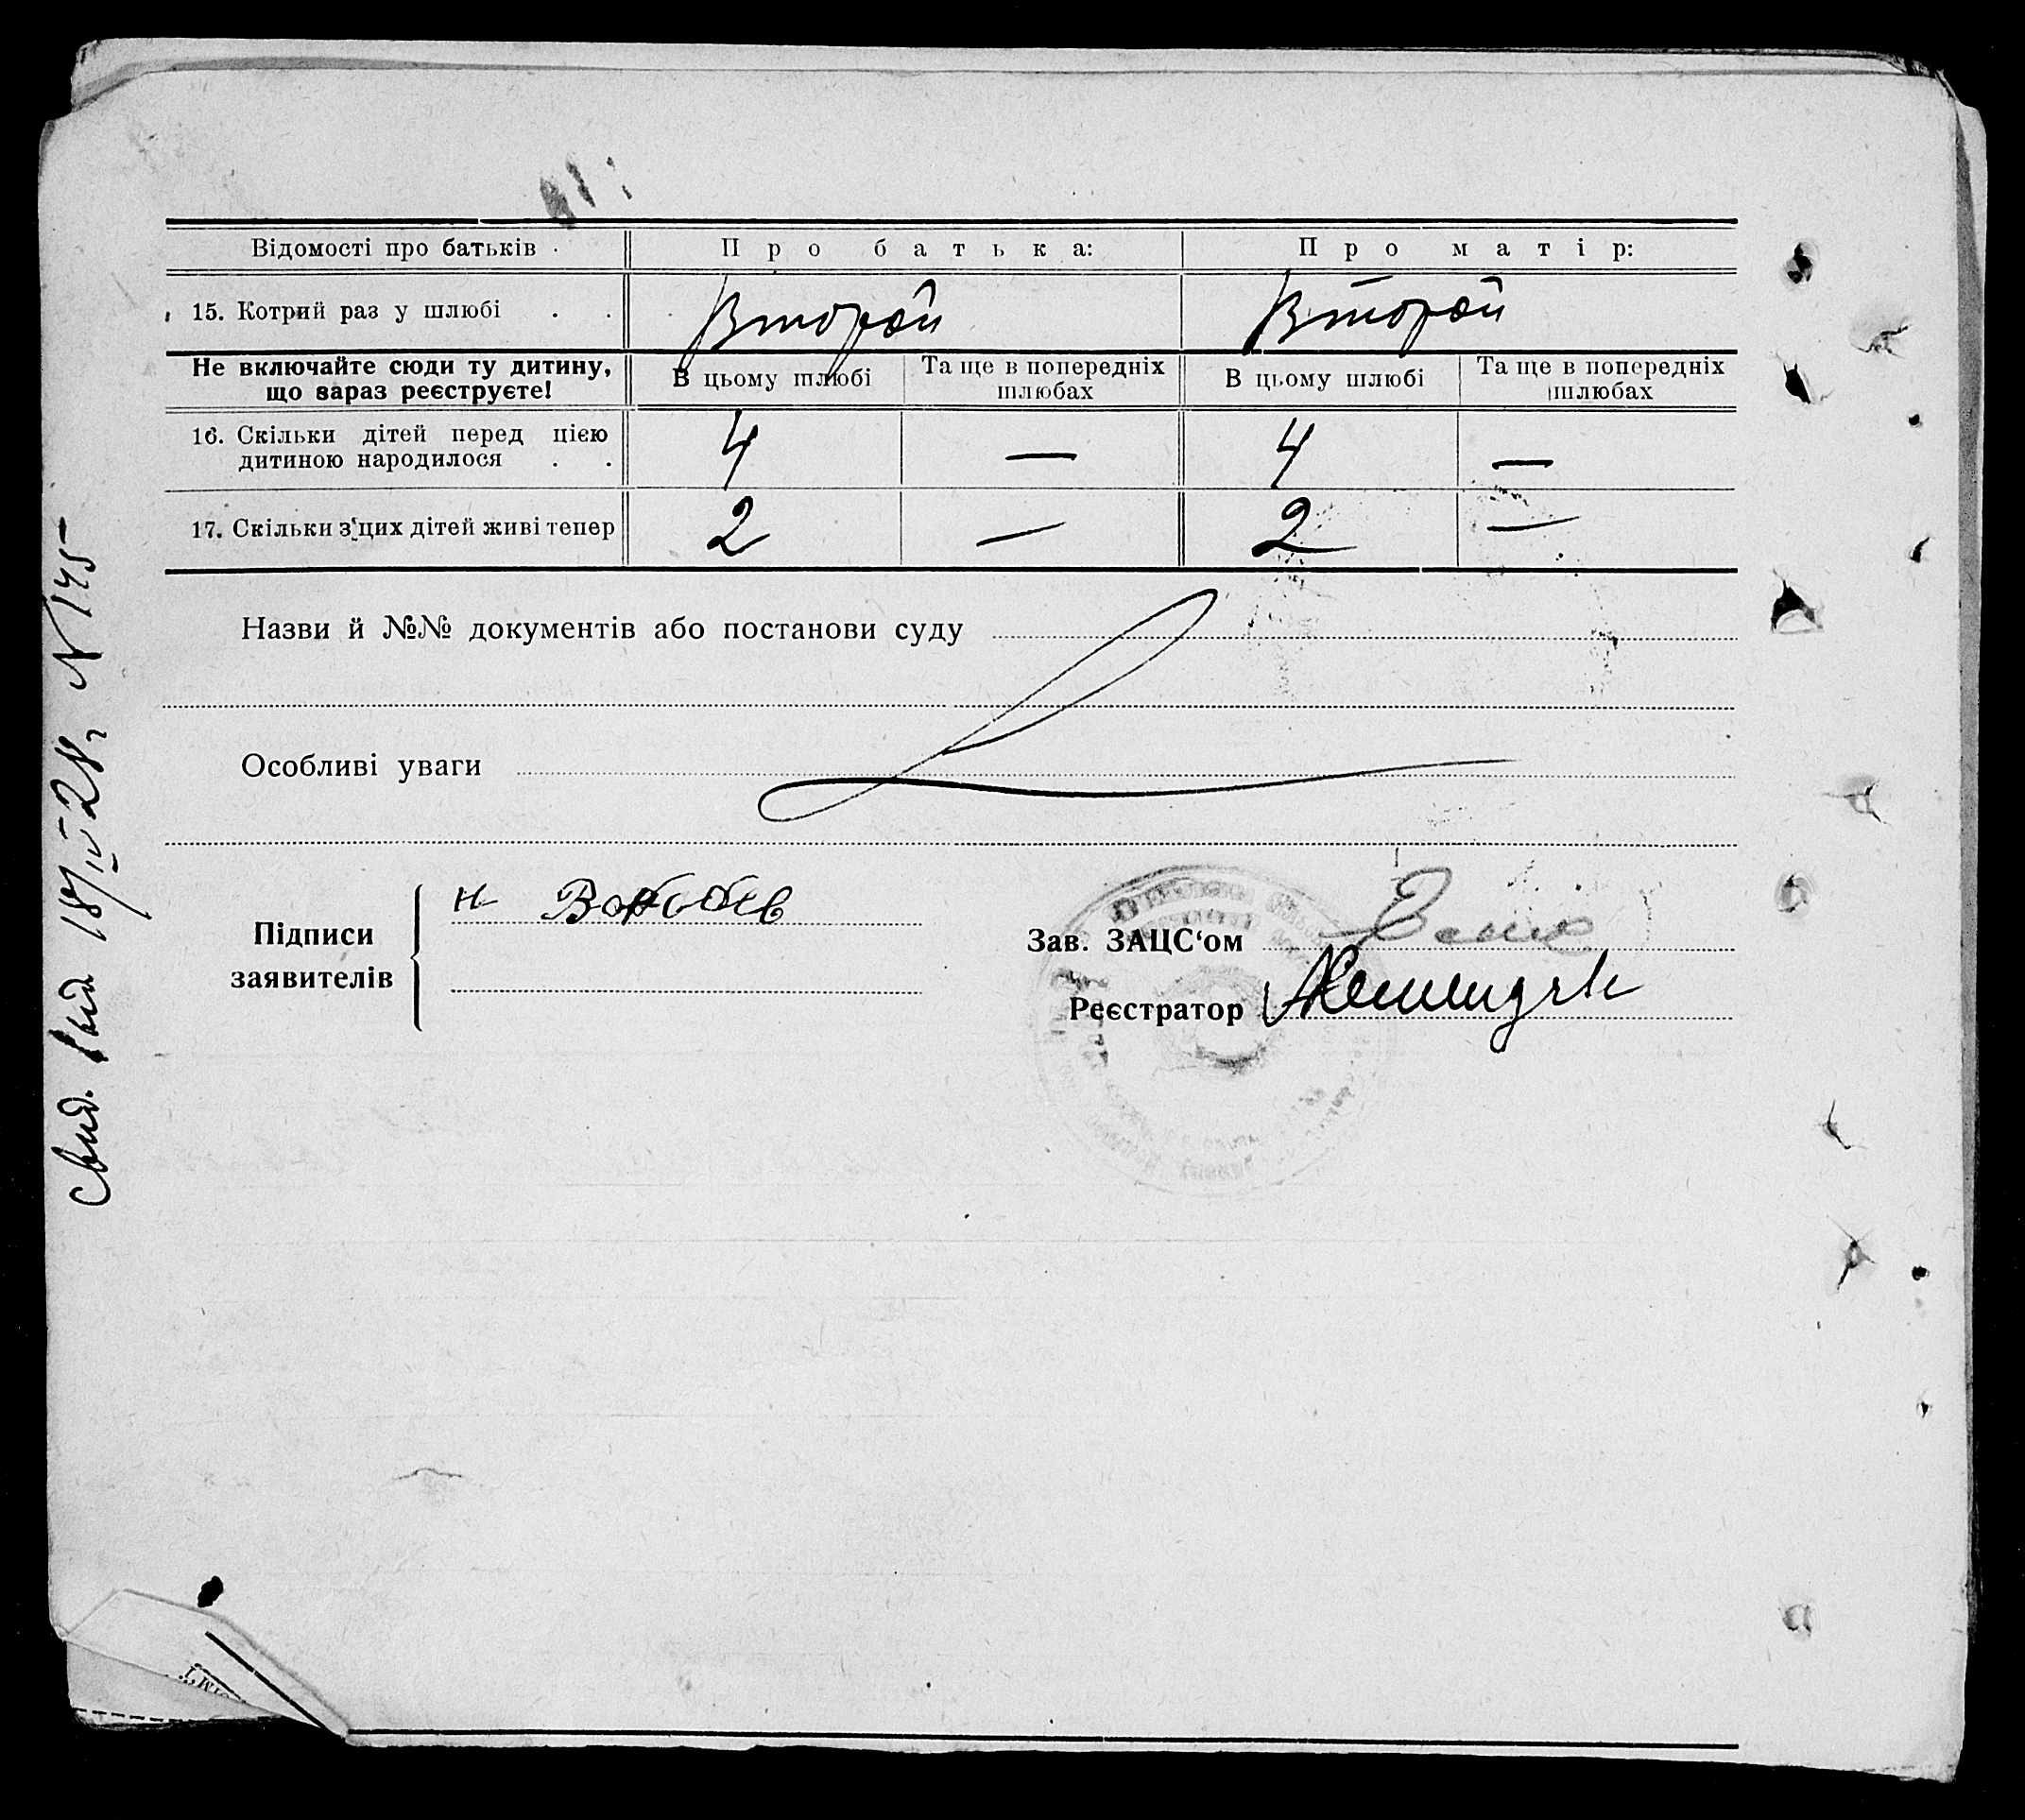 Відомості про батьків
Про батька:
Про матір:
15. Котрий раз у шлюбі . .
Второй
Второй
Не включайте сюди ту дитину, що зараз реєструєте!
В цьому шлюбі
Та ще в попередніх шлюбах
В цьому шлюбі
Та ще в попередніх шлюбах
16. Скільки дітей перед цією дитиною народилося . .
4
—
4
—
17. Скільки з'цих дітей живі тепер
2
—
2
—
Назви й №№ документів або постанови суду
Особливі уваги
Підписи заявителів
Зав. ЗАЦС'ом
Реєстратор
Свид. выд. 18/IV 28 г N 145